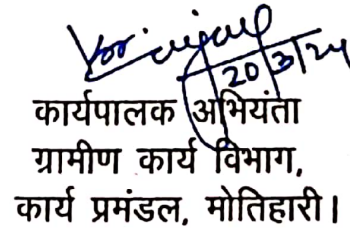 20/3/24
कार्यपालक अभियंता
ग्रामीण कार्य विभाग,
कार्य प्रमंडल, मोतिहारी।